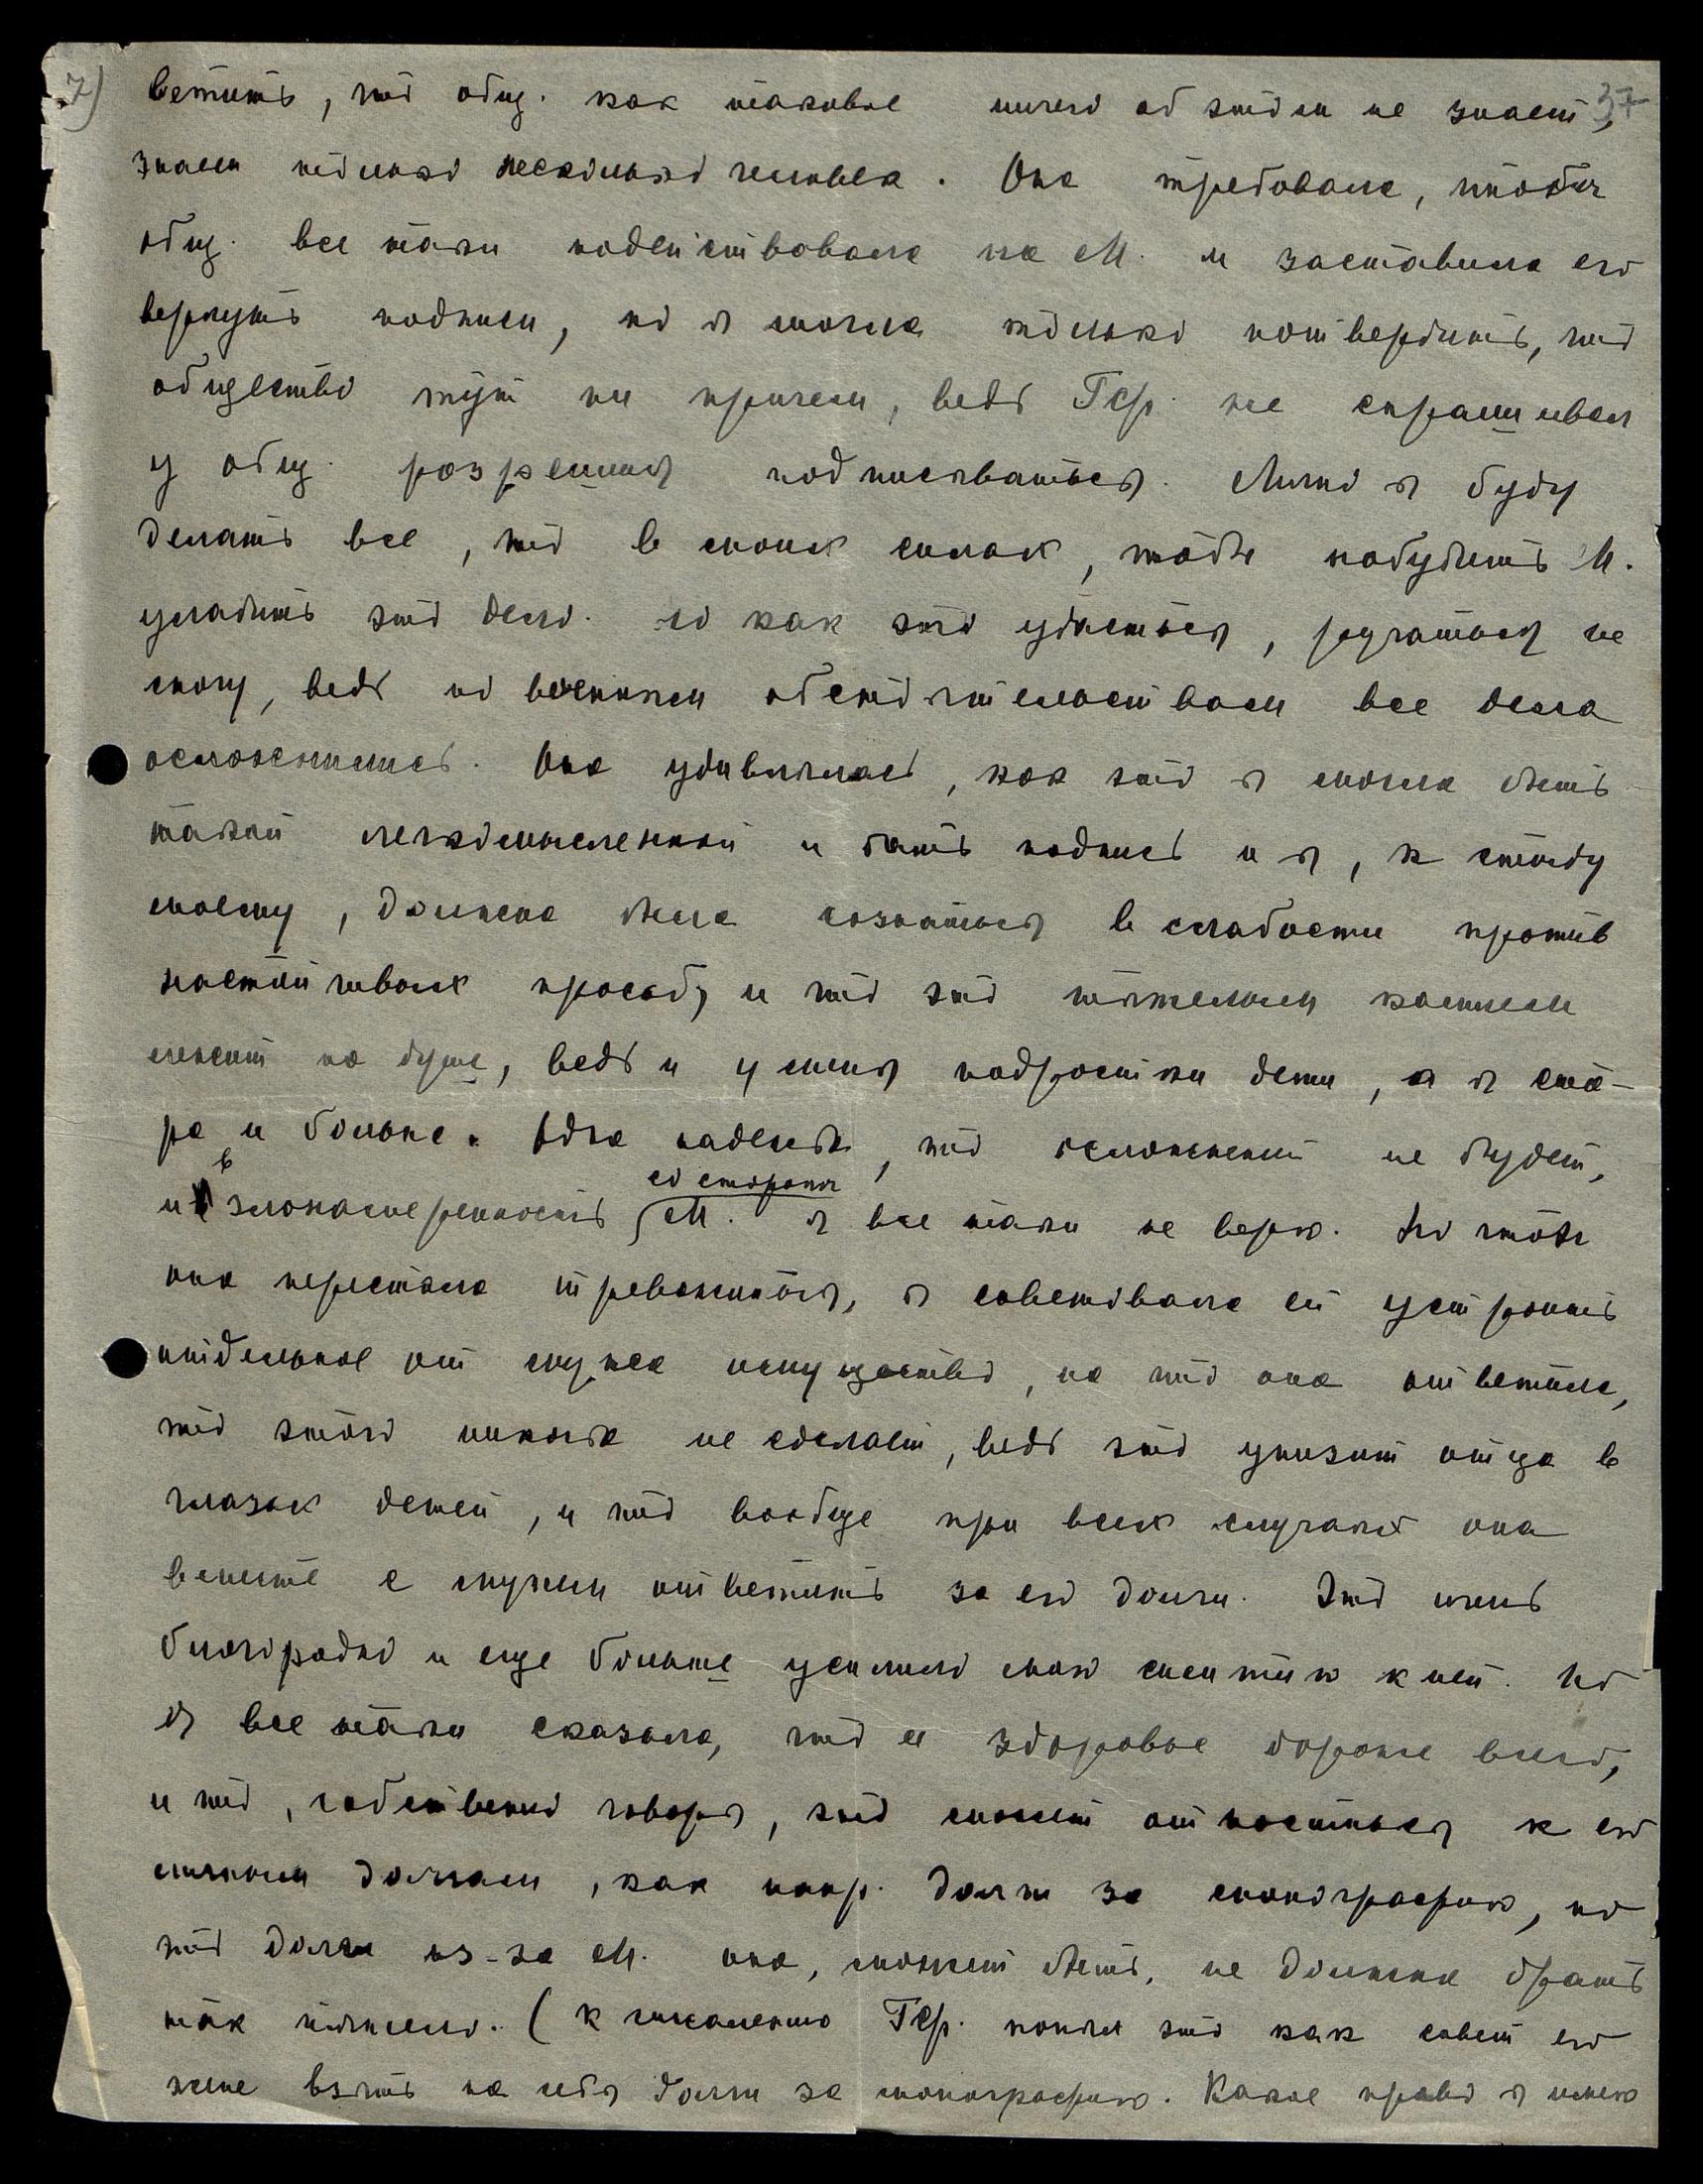 7) ветить, что общ. как таковое ничего об этом не знает, 37
знаем только несколько человек. Она требовала, чтобы
общ. все таки подействовало на М. и заставило его
вернуть подписи, но я могла только потвердить, что
общество тут ни причем, ведь Гер. не спрашивал
у общ. разрешения подписываться. Лично я буду
делать все, что в моих силах, чтобы побудить М.
уладить это дело. но как это удасться, ручаться не
могу, ведь по военным обстоятельствам все дела
осложнились. Она удивлялась, как это я могла быть
такой легкомысленной и дать подпись и я, к стыду
моему, должна была сознаться в слабости против
настойчивых просьб, и что это тяжелым камнем
лежит на душе, ведь и у меня подростки дети, а я ста-
ра и больна. Одна надежда, что осложнений не будет,
и в злонамеренность со стороны М. я все таки не верю. Но чтобы
она перестала тревожиться, я советовала ей устроить
отдельное от мужа имущество, на что она ответила,
что этого никогда не сделает, ведь это унизит отца в
глазах детей, и что вообще при всех случаях она
вместе с мужем ответить за его долги. Это очень
благородно и еще больше усилило мою симпатию к ней. Но
я все таки сказала, что ее здоровье дороже всего,
и что, собственно говоря, это может относиться к его
личным долгам, как напр. долги за монографию, но
что долги из-за М. она, может быть, не должна брать
так тяжело. (К сожалению Гер. понял это как совет его
жене взять на себя долги за монографию. Какое право я имею